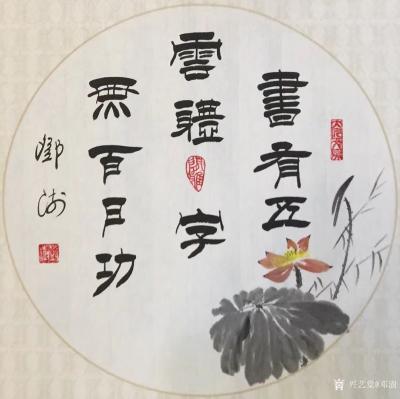 書有五
雲體字
無百日功
鄧澍
兴艺堂@邓澍